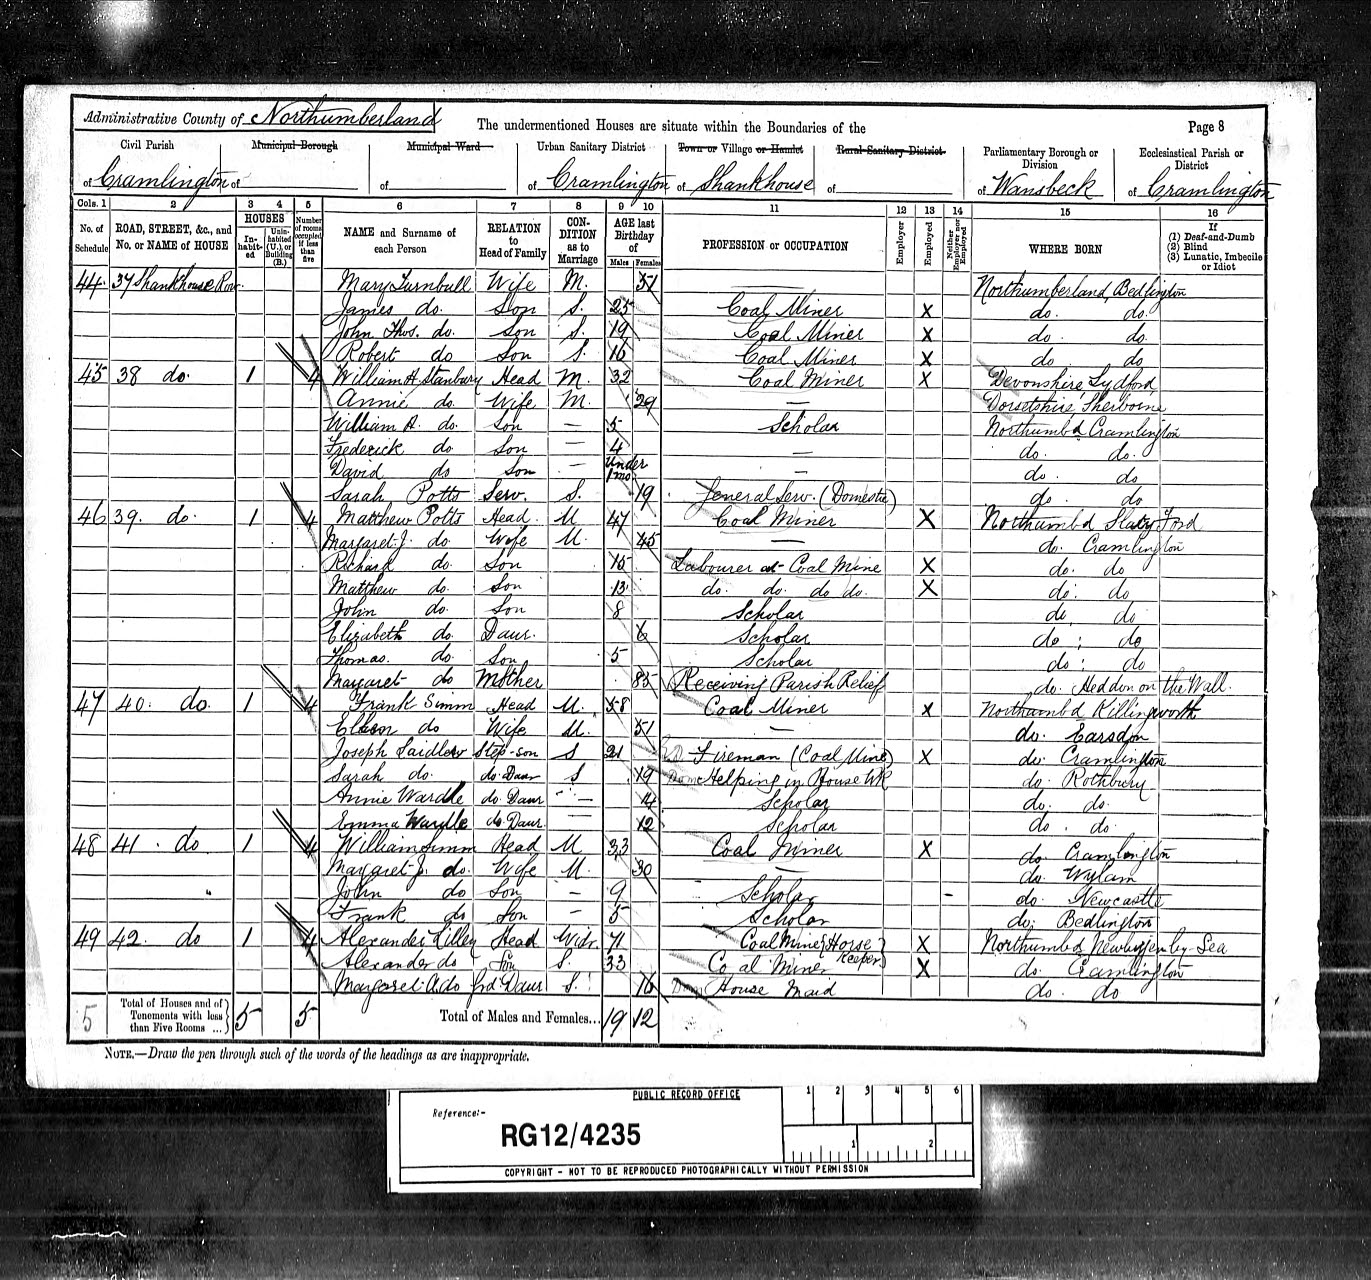 Administrative County of Northumberland
The undermentioned Houses are situate within the Boundaries of the
Page 8
Civil Parish of Cramlington
Municipal Borough of
Municipal Ward of
Urban Sanitary District of Cramlington
Town or Village or Hamlet of Shankhouse
Rural Sanitary District of
Parliamentary Borough or Division of Wansbeck
Ecclesiastical Parish or District of Cramlington
Cols. 1 2 3 4 5 6 7 8 9 10 11 12 13 14 15 16
No. of Schedule
ROAD, STREET, &c., and No. or NAME of HOUSE
HOUSES
In-habit-ed
Unin-habited (U.), or Building (B.)
Number of rooms occupied if less than five
NAME and Surname of each Person
RELATION to Head of Family
CON-DITION as to Marriage
AGE last Birthday of
Males Females
PROFESSION or OCCUPATION
Employer
Employed
Neither Employer nor Employed
WHERE BORN
If
(1) Deaf-and-Dumb
(2) Blind
(3) Lunatic, Imbecile or Idiot
44 37 Shankhouse Row Mary Turnbull Wife M. 51 Northumberland Bedlington
James do. Son S. 25 Coal Miner X do. do.
John Thos. do. Son S. 19 Coal Miner X do. do
Robert do Son S. 16 Coal Miner X do do
45 38 do. 1 4 William H. Stanbury Head M. 32 Coal Miner X Devonshire Lydford
Annie do. Wife M. 29 — Dorsetshire Sherborne
William A. do. Son — 5 Scholar Northumbd Cramlington
Frederick do Son — 4 — do. do.
David do Son — Under 1 mo. — do. do
Sarah Potts Serv. S. 19 General Serv. (Domestic) do. do
46 39. do. 1 4 Matthew Potts Head. M 47 Coal Miner X Northumbd Ford
Margaret J. do. Wife M. 45 — do. Cramlington
Richard do Son 15 Labourer at Coal Mine X do. do
Matthew do. Son 13 do. do. do do. X do. do
John do. Son 8 Scholar do. do
Elizabeth do. Daur. 6 Scholar do. do
Thomas. do. Son 5 Scholar do. do
Margaret do Mother 85 Receiving Parish Relief do. Heddon on the Wall.
47 40. do. 1 4 Frank Simm Head M. 58 Coal Miner X Northumbd Killingworth
do Wife M. 51 — do. Earsdon
Joseph Laidlow Step-son S 21 Fireman (Coal Mine) X do. Cramlington
Sarah do. do. Daur S 19 Helping in House Wk do. Rothbury
Annie Wardle do. Daur — 14 Scholar do. do.
Emma Wardle do. Daur. — 12 Scholar do. do.
48 41. do 1 4 William Simm Head M 33 Coal Miner X do Cramlington
Margaret J. do. Wife M. 30 — do. Wylam
John do Son — 9 Scholar do. Newcastle
Frank do Son — 5 Scholar do. Bedlington
49 42. do 1 4 Alexander Lilley Head Widr. 71 Coal Mine (Horse Keeper) X Northumbd Newbiggen by-Sea
Alexander do Son S. 33 Coal Miner X do. Cramlington
Margaret A. do Grd Daur S. 16 House Maid do. do
5 Total of Houses and of Tenements with less than Five Rooms ... 5 5 Total of Males and Females... 19 12
NOTE.—Draw the pen through such of the words of the headings as are inappropriate.
PUBLIC RECORD OFFICE
1 2 3 4 5 6
Reference:-
RG12/4235
1 2
COPYRIGHT - NOT TO BE REPRODUCED PHOTOGRAPHICALLY WITHOUT PERMISSION